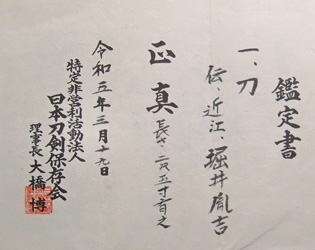 鑑定書
一、刀
伝、近江、堀井胤吉
正真
長さ、二尺五寸
令和五年三月十九日
特定非営利活動法人
日本刀剣保存会
理事長 大橋博